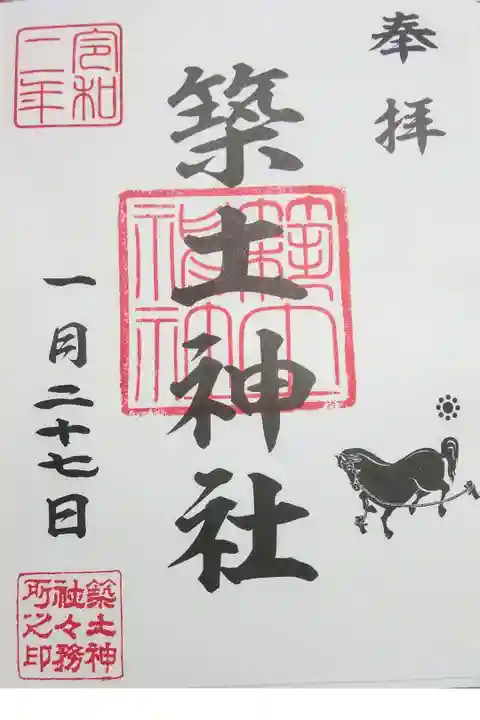 奉拝
築土神社
築土神社
令和
二年
一月二十七日
築土神
社々務
所之印